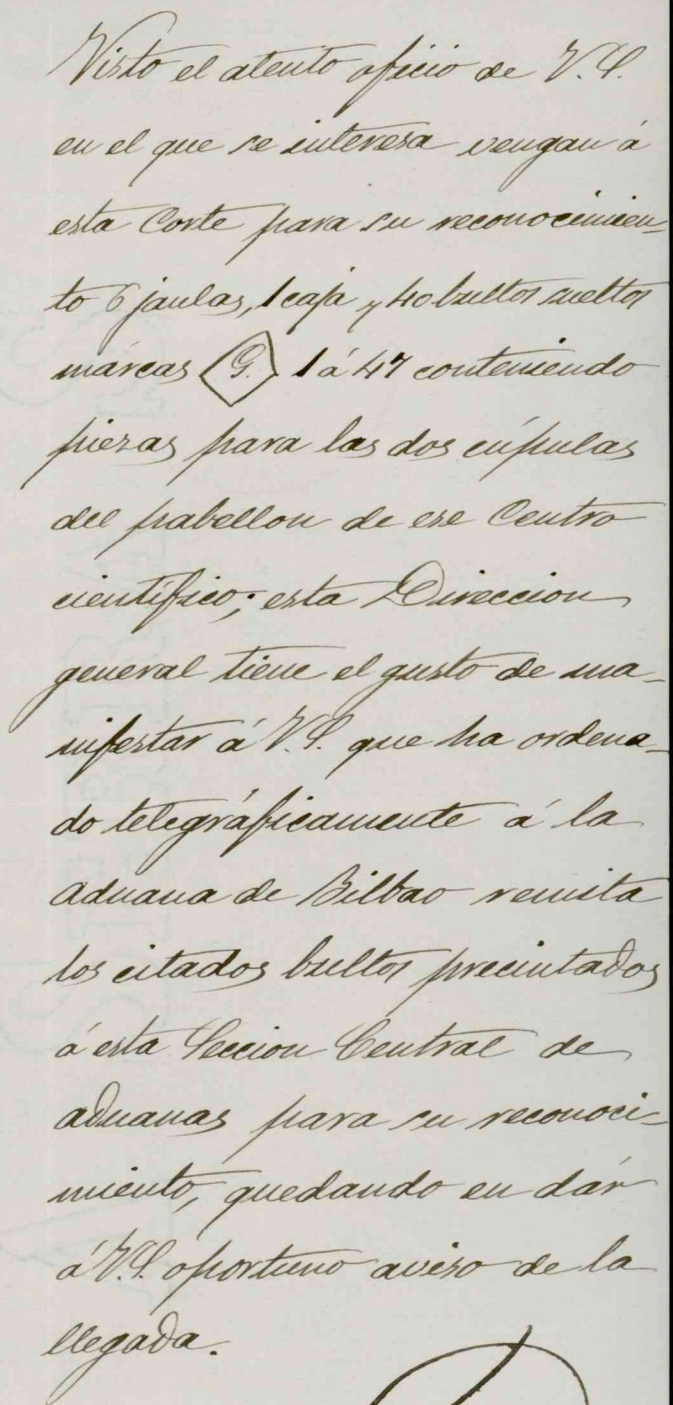 Visto el atento oficio de V.S.
en el que se interesa vengan á
esta Corte para su reconocimien-
to 6 jaulas, 1 caja y 40 bultos sueltos
marcas G. 1 á 47 conteniendo
piezas para las dos cúpulas
del pabellon de ese Centro
científico; esta Direccion
general tiene el gusto de ma-
nifestar á V.S. que ha ordena-
do telegráficamente á la
aduana de Bilbao remita
los citados bultos precintados
á esta Seccion Central de
aduanas para su reconoci-
miento, quedando en dár
á V.S. oportuno aviso de la
llegada.